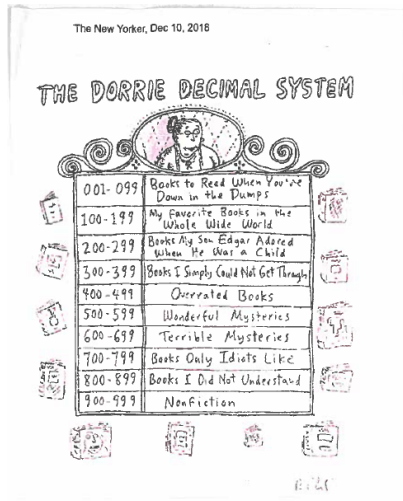 The New Yorker, Dec 10, 2018
THE DORRIE DECIMAL SYSTEM
001-099 Books to Read When You're
Down in the Dumps
100-199 My Favorite Books in the
Whole Wide World
200-299 Books My Son Edgar Adored
When He Was a Child
300-399 Books I Simply Could Not Get Through
400-499 Overrated Books
500-599 Wonderful Mysteries
600-699 Terrible Mysteries
700-799 Books Only Idiots Like
800-899 Books I Did Not Understand
900-999 Nonfiction